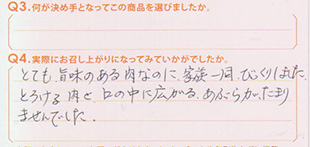 Q3.何が決め手となってこの商品を選びましたか。
Q4.実際にお召し上がりになってみていかがでしたか。
とても旨味のある肉なのに、家族一同、びっくりしました。
とろける肉と口の中に広がる、あぶらが、たまり
ませんでした。